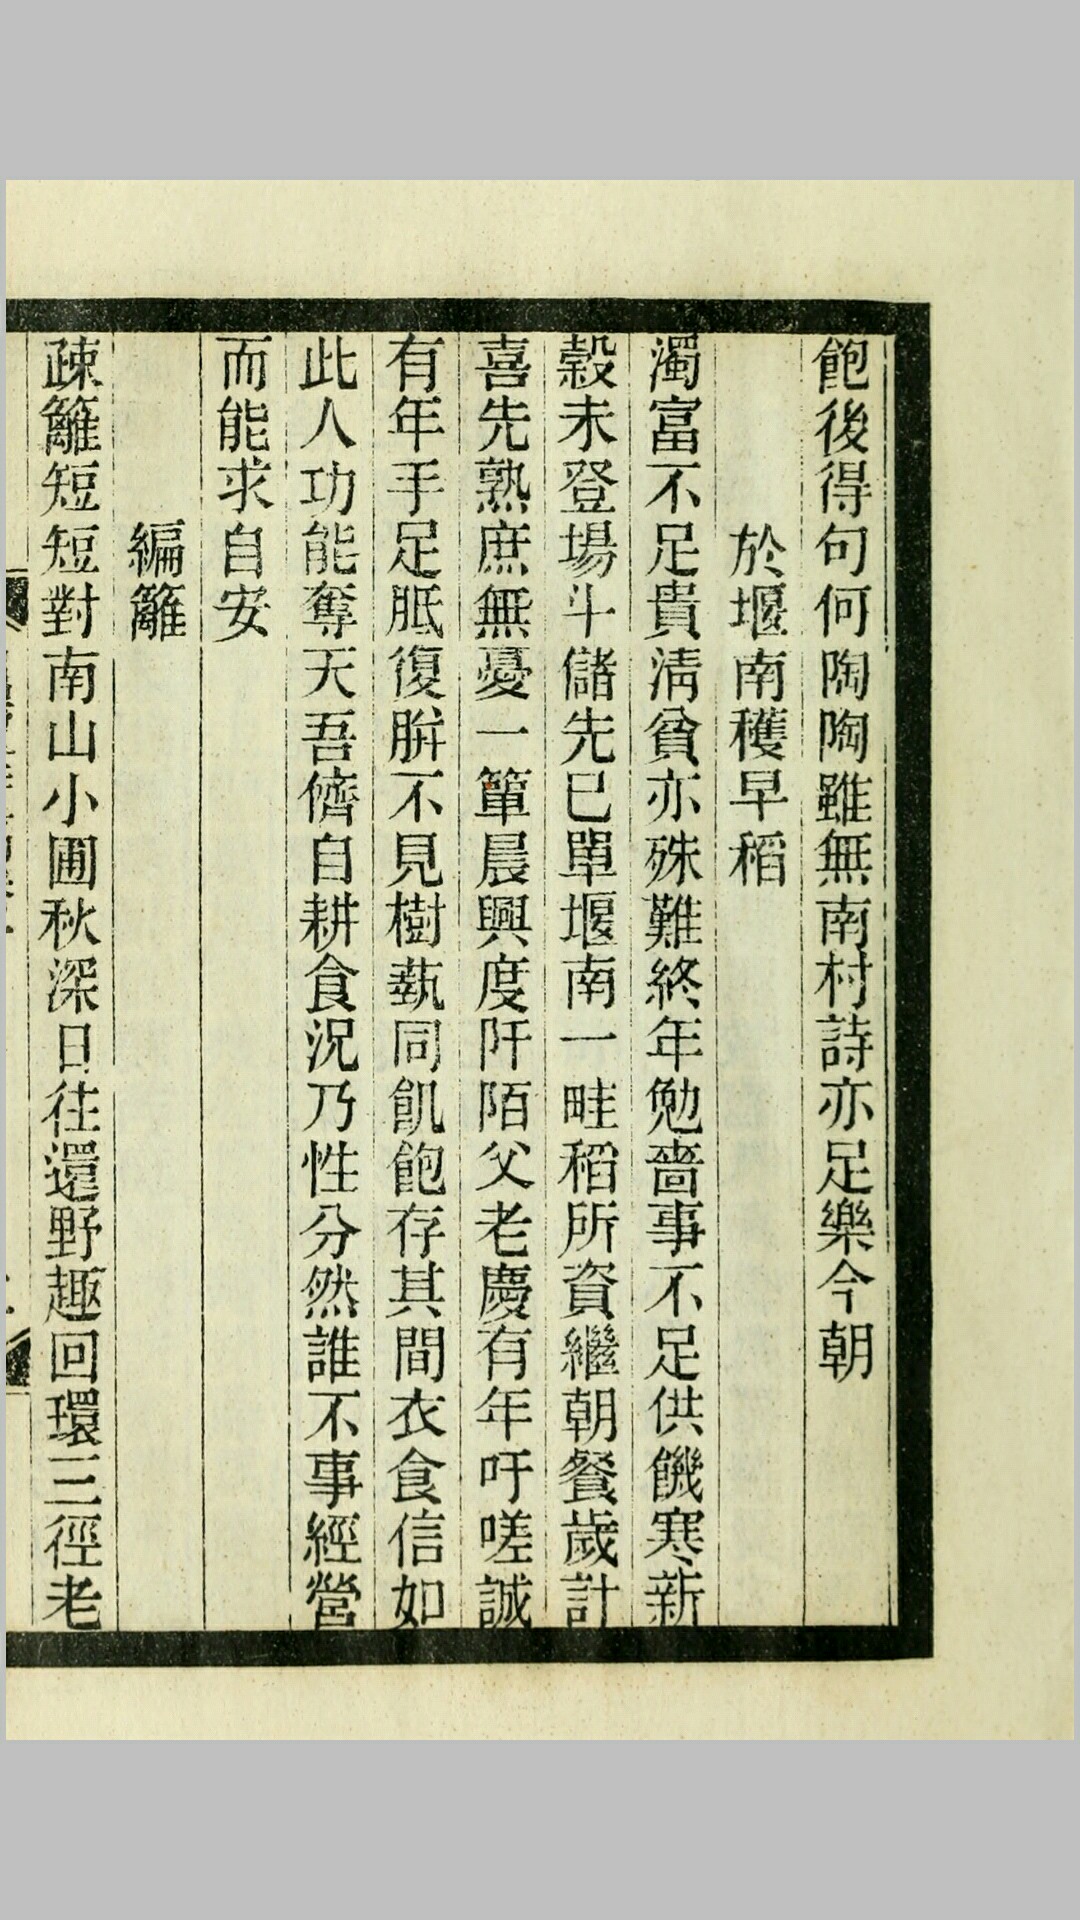 飽後得句何陶陶雖無南村詩亦足樂今朝
於堰南穫早稻
濁富不足貴淸貧亦殊難終年勉嗇事不足供饑寒新
穀未登場斗儲先已單堰南一畦稻所資繼朝餐歲計
喜先熟庶無憂一簞晨興度阡陌父老慶有年吁嗟誠
有年手足胝復胼不見樹蓺同飢飽存其間衣食信如
此人功能奪天吾儕自耕食況乃性分然誰不事經營
而能求自安
編籬
疎籬短短對南山小圃秋深日往還野趣回環三徑老